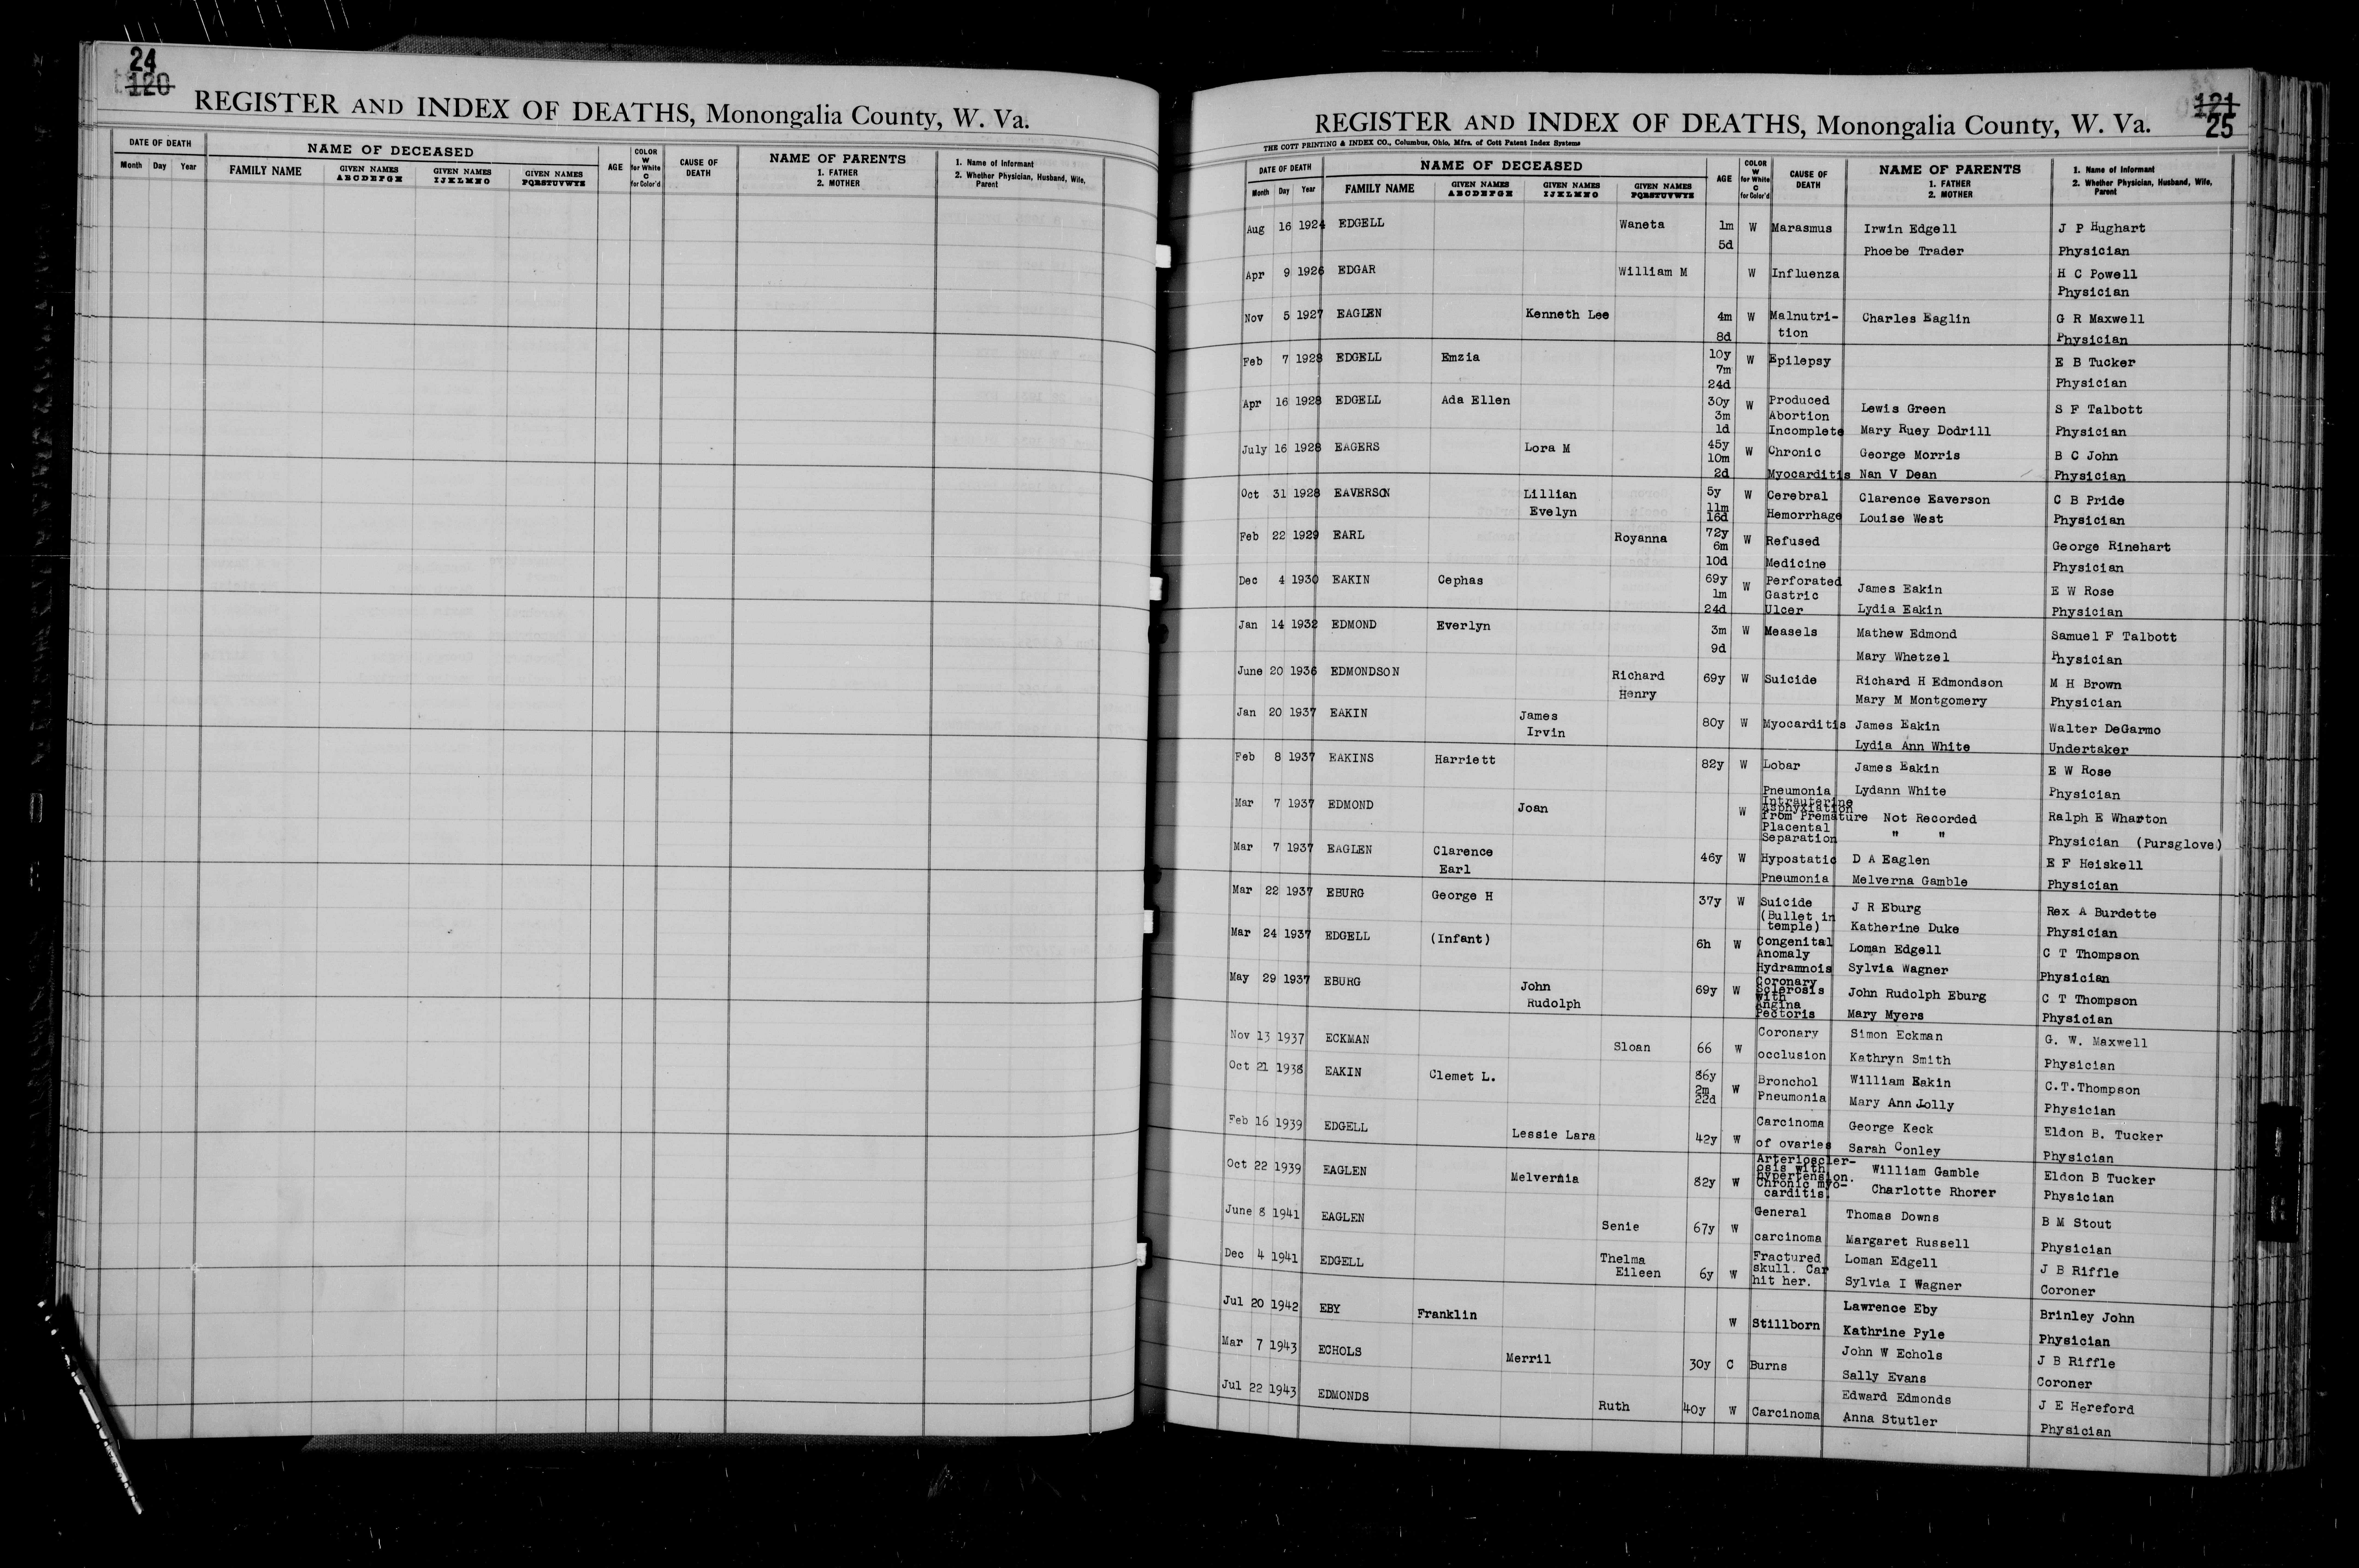 24
120
REGISTER AND INDEX OF DEATHS, Monongalia County, W. Va.
DATE OF DEATH NAME OF DECEASED AGE COLOR W for White C for Color'd CAUSE OF DEATH NAME OF PARENTS 1. FATHER 2. MOTHER 1. Name of Informant 2. Whether Physician, Husband, Wife, Parent
Month Day Year FAMILY NAME GIVEN NAMES ABCDEFGH GIVEN NAMES IJKLMNO GIVEN NAMES PQRSTUVWYZ
121
25
REGISTER AND INDEX OF DEATHS, Monongalia County, W. Va.
THE COTT PRINTING & INDEX CO., Columbus, Ohio, Mfrs. of Cott Patent Index Systems
DATE OF DEATH NAME OF DECEASED AGE COLOR W for White C for Color'd CAUSE OF DEATH NAME OF PARENTS 1. FATHER 2. MOTHER 1. Name of Informant 2. Whether Physician, Husband, Wife, Parent
Month Day Year FAMILY NAME GIVEN NAMES ABCDEFGH GIVEN NAMES IJKLMNO GIVEN NAMES PQRSTUVWYZ
Aug 16 1924 EDGELL Waneta 1m W Marasmus Irwin Edgell J P Hughart
5d Phoebe Trader Physician
Apr 9 1926 EDGAR William M W Influenza H C Powell
Physician
Nov 5 1927 EAGLEN Kenneth Lee 4m W Malnutri- Charles Eaglin G R Maxwell
8d tion Physician
Feb 7 1928 EDGELL Emzia 10y W Epilepsy E B Tucker
7m
24d Physician
Apr 16 1928 EDGELL Ada Ellen 30y W Produced Lewis Green S F Talbott
3m Abortion
1d Incomplete Mary Ruey Dodrill Physician
July 16 1928 EAGERS Lora M 45y W Chronic George Morris B C John
10m
2d Myocarditis Nan V Dean Physician
Oct 31 1928 EAVERSON Lillian 5y W Cerebral Clarence Eaverson C B Pride
Evelyn 11m
16d Hemorrhage Louise West Physician
Feb 22 1929 EARL Royanna 72y W Refused George Rinehart
6m
10d Medicine Physician
Dec 4 1930 EAKIN Cephas 69y W Perforated James Eakin E W Rose
1m Gastric
24d Ulcer Lydia Eakin Physician
Jan 14 1932 EDMOND Everlyn 3m W Measels Mathew Edmond Samuel F Talbott
9d Mary Whetzel Physician
June 20 1936 EDMONDSON Richard 69y W Suicide Richard H Edmondson M H Brown
Henry Mary M Montgomery Physician
Jan 20 1937 EAKIN James 80y W Myocarditis James Eakin Walter DeGarmo
Irvin Lydia Ann White Undertaker
Feb 8 1937 EAKINS Harriett 82y W Lobar James Eakin E W Rose
Pneumonia Lydann White Physician
Mar 7 1937 EDMOND Joan W Intrauterine
Asphyxiation
from Premature Not Recorded Ralph E Wharton
Placental " "
Separation Physician (Pursglove)
Mar 7 1937 EAGLEN Clarence 46y W Hypostatic D A Eaglen E F Heiskell
Earl Pneumonia Melverna Gamble Physician
Mar 22 1937 EBURG George H 37y W Suicide J R Eburg Rex A Burdette
(Bullet in
temple) Katherine Duke Physician
Mar 24 1937 EDGELL (Infant) 6h W Congenital Loman Edgell C T Thompson
Anomaly
Hydramnois Sylvia Wagner Physician
May 29 1937 EBURG John 69y W Coronary
Sclerosis John Rudolph Eburg C T Thompson
Rudolph with
Angina
Pectoris Mary Myers Physician
Nov 13 1937 ECKMAN Sloan 66 W Coronary Simon Eckman G. W. Maxwell
occlusion Kathryn Smith Physician
Oct 21 1938 EAKIN Clemet L. 86y W Bronchol William Eakin C.T.Thompson
2m
22d Pneumonia Mary Ann Jolly Physician
Feb 16 1939 EDGELL Lessie Lara 42y W Carcinoma George Keck Eldon B. Tucker
of ovaries Sarah Conley Physician
Oct 22 1939 EAGLEN Melvernia 82y W Arterioscler-
osis with William Gamble Eldon B Tucker
hypertension.
Chronic myo- Charlotte Rhorer Physician
carditis
June 8 1941 EAGLEN Senie 67y W General Thomas Downs B M Stout
carcinoma Margaret Russell Physician
Dec 4 1941 EDGELL Thelma 6y W Fractured Loman Edgell J B Riffle
Eileen skull. Car
hit her. Sylvia I Wagner Coroner
Jul 20 1942 EBY Franklin W Stillborn Lawrence Eby Brinley John
Kathrine Pyle Physician
Mar 7 1943 ECHOLS Merril 30y C Burns John W Echols J B Riffle
Sally Evans Coroner
Jul 22 1943 EDMONDS Ruth 40y W Carcinoma Edward Edmonds J E Hereford
Anna Stutler Physician